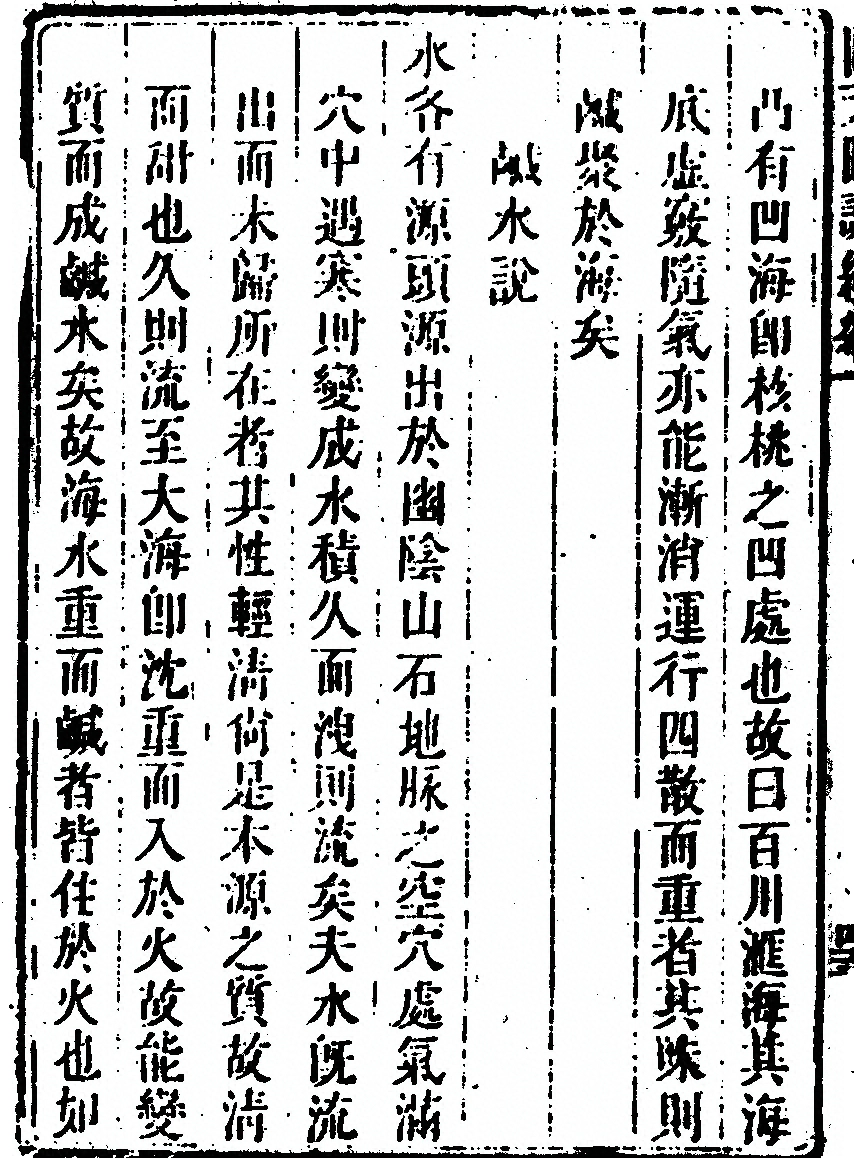 凸有凹海卽核桃之凹處也故曰百川滙海其海
底虛竅隨氣亦能漸消運行四散而重者其味則
鹹聚於海矣
鹹水說
水各有源頭源出於幽陰山石地脈之空穴處氣滿
穴中遇寒則變成水積久而洩則流矣夫水旣流
出而未歸所在者其性輕清尚是本源之質故清
而甜也久則流至大海卽沈重而入於火故能變
質而成鹹水矣故海水重而鹹者皆任於火也如